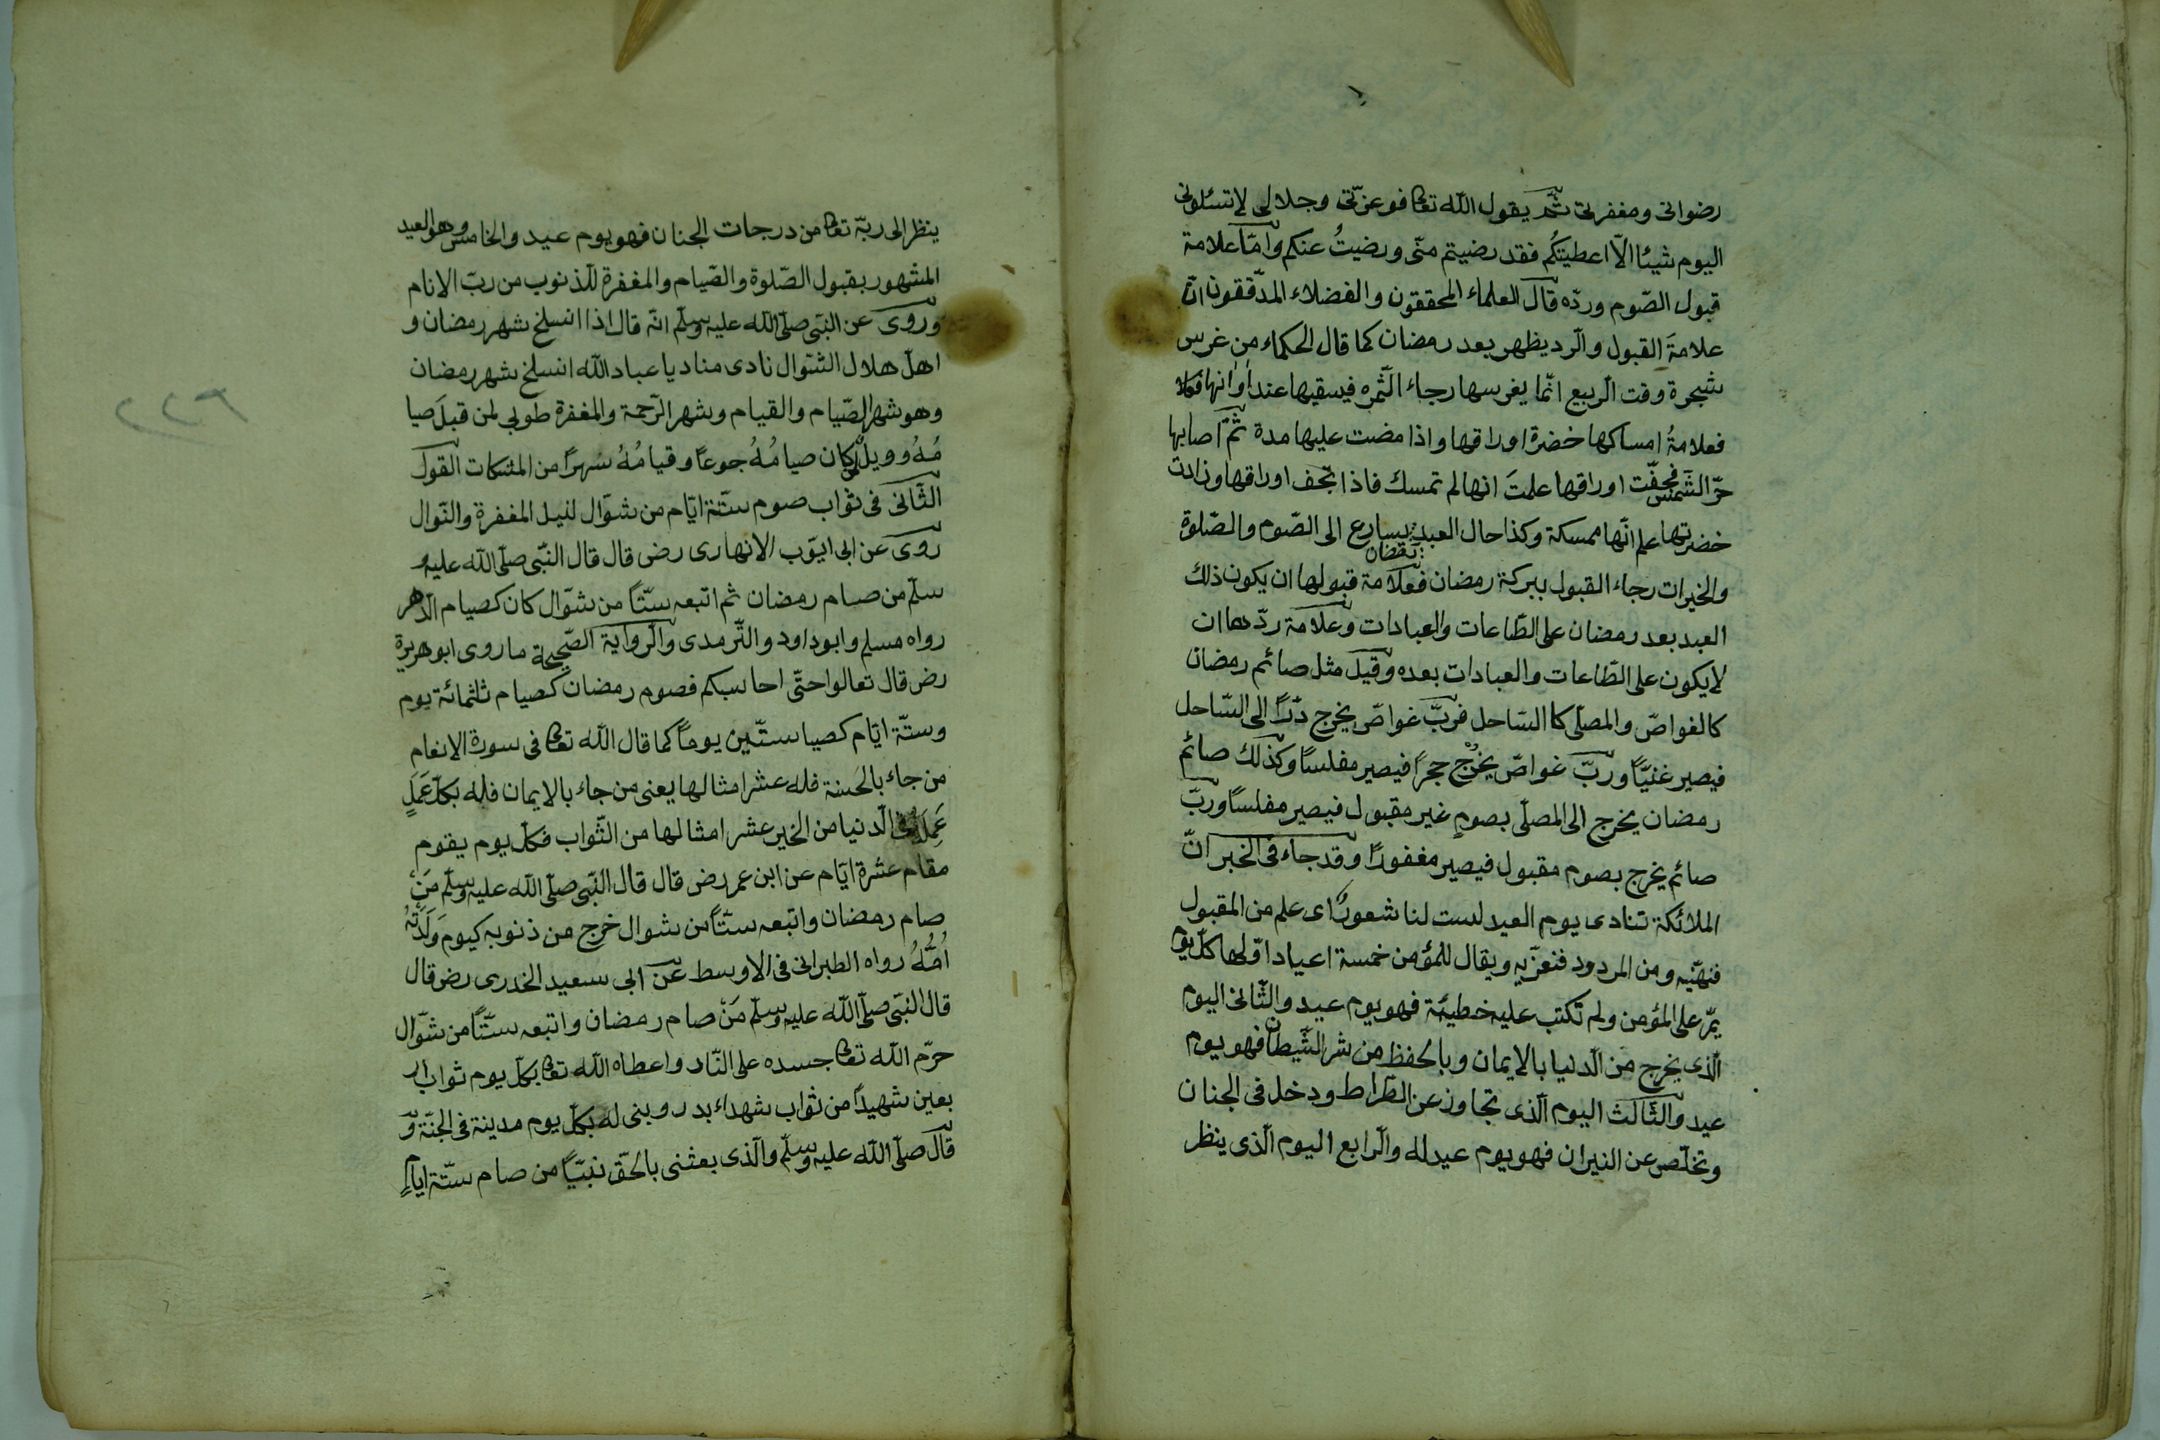 رضوانى ومغفرتى ثمّ يقول اللّه تعالى فوعزّتى وجلالى لا تسئلونى
اليوم شيئا الّا اعطيتكُم فقد رضيتم منّى ورضيتُ عنكم وامّا علامة
قبول الصّوم وردّه قال العلماء المحققون والفضلاء المدقّقون انّ
علامةَ القبول والرّد يظهر بعد رمضان كما قال الحكماء من غرس
شجرة وقت الرّبيع انّما يغرسها رجاء الثّمره فيسقيها عند اوانها
فعلامةُ امساكها خضرة اوراقها واذا مضت عليها مدة ثمّ اصابها
حرّ الشّمس فجفّت اوراقها علمتَ انها لم تمسك فاذا تجف اوراقها وزادت
خضرتها علم انّها ممسكة وكذا حال العبد يسارع الى الصّوم والصّلوة
والخيرات رجاء القبول ببركة رمضان فعلامة قبولها ان يكون ذلك
العبد بعد رمضان على الطّاعات والعبادات وعلامة ردّها ان
لا يكون على الطّاعات والعبادات بعده وقيل مثل صائم رمضان
كالغواصّ والمصلّى كا السّاحل فربّ غواصّ يخرج درّاً الى السّاحل
فيصير غنيّاً وربّ غواصّ يخرج حجراً فيصير مفلساً وكذلك صائم
رمضان يخرج الى المصلّى بصومٍ غير مقبول فيصير مفلساً وربّ
صائم يخرج بصوم مقبول فيصير مغفوراً وقد جاء فى الخبر انّ
الملائكة تنادى يوم العيد لست لنا شعورٌ اى علم من المقبول
فنهنّيه ومن المردود فنعزّيه ويقال للمؤمن خمسة اعياد اوّلها كلّ يوم
يمرّ على المؤمن ولم تكتب عليه خطيئة فهو يوم عيد والثّانى اليوم
الّذى يخرج من الدّنيا بالايمان وبالحفظ من شر الشّيطان فهو يوم
عيد والثّالث اليوم الّذى تجاوز عن الصّراط ودخل فى الجنان
وتخلّص عن النيران فهو يوم عيد له والرّابع اليوم الّذى ينظر
ينظر الى ربّه تعالى من درجات الجنان فهو يوم عيد والخامس وهو العيد
المشهور بقبول الصّلوة والصّيام والمغفرة للذّنوب من ربّ الانام
وروى عن النبّى صلّى اللّه عليه وسلّم انّه قال اذا انسلخ شهر رمضان و
اهلّ هلال الشّوال نادى مناد يا عباد اللّه انسلخ شهر رمضان
وهو شهر الصّيام والقيام وشهر الرّحمة والمغفرة طوبى لمن قبلَ صيا
مُهُ وويلٌ لمن كان صيامُهُ جوعاً وقيامُهُ سهراً من المشكات القول
الثّانى فى ثواب صوم ستّة ايّام من شوّال لنيل المغفرة والنّوال
روى عن ابى ايّوب الانهارى رض قال قال النّبى صلّى اللّه عليه و
سلّم من صام رمضان ثم اتبعه ستّاً من شوّال كان كصيام الدّهر
رواه مسلم وابو داود والتّرمدى والرّواية الصّحيحة ما روى ابو هريرة
رض قال تعالوا حتّى احاسبكم فصوم رمضان كصيام ثلثمائة يوم
وستّة ايّام كصيا ستّين يوماً كما قال اللّه تعالى فى سورة الانعام
من جاء بالحسنة فله عشر امثالها يعنى من جاء بالايمان فله بكلّ عَمَلٍ
عَمِلَ فى الدّنيا من الخير عشر امثالها من الثّواب فكلّ يوم يقوم
مقام عشرة ايّام عن ابن عمر رض قال قال النّبى صلّى اللّه عليه وسلّم مَنْ
صام رمضان واتبعه ستّاً من شوال خرج من ذنوبه كيوم وَلَدَتْهُ
اُمُّهُ رواه الطبرانى فى الاوسط عن ابى سعيد الخدرى رض قال
قال النّبى صلّى اللّه عليه وسلّم مَنْ صام رمضان واتبعه ستّاً من شوّال
حرّم اللّه تعالى جسده على النّار واعطاه اللّه تعالى بكلّ يوم ثواب ار
بعين شهيداً من ثواب شهداء بدر وبنى له بكلّ يوم مدينة فى الجنّة و
قال صلّى اللّه عليه وسلّم والّذى بعثنى بالحقّ نبيّاً من صام ستّة ايامٍ